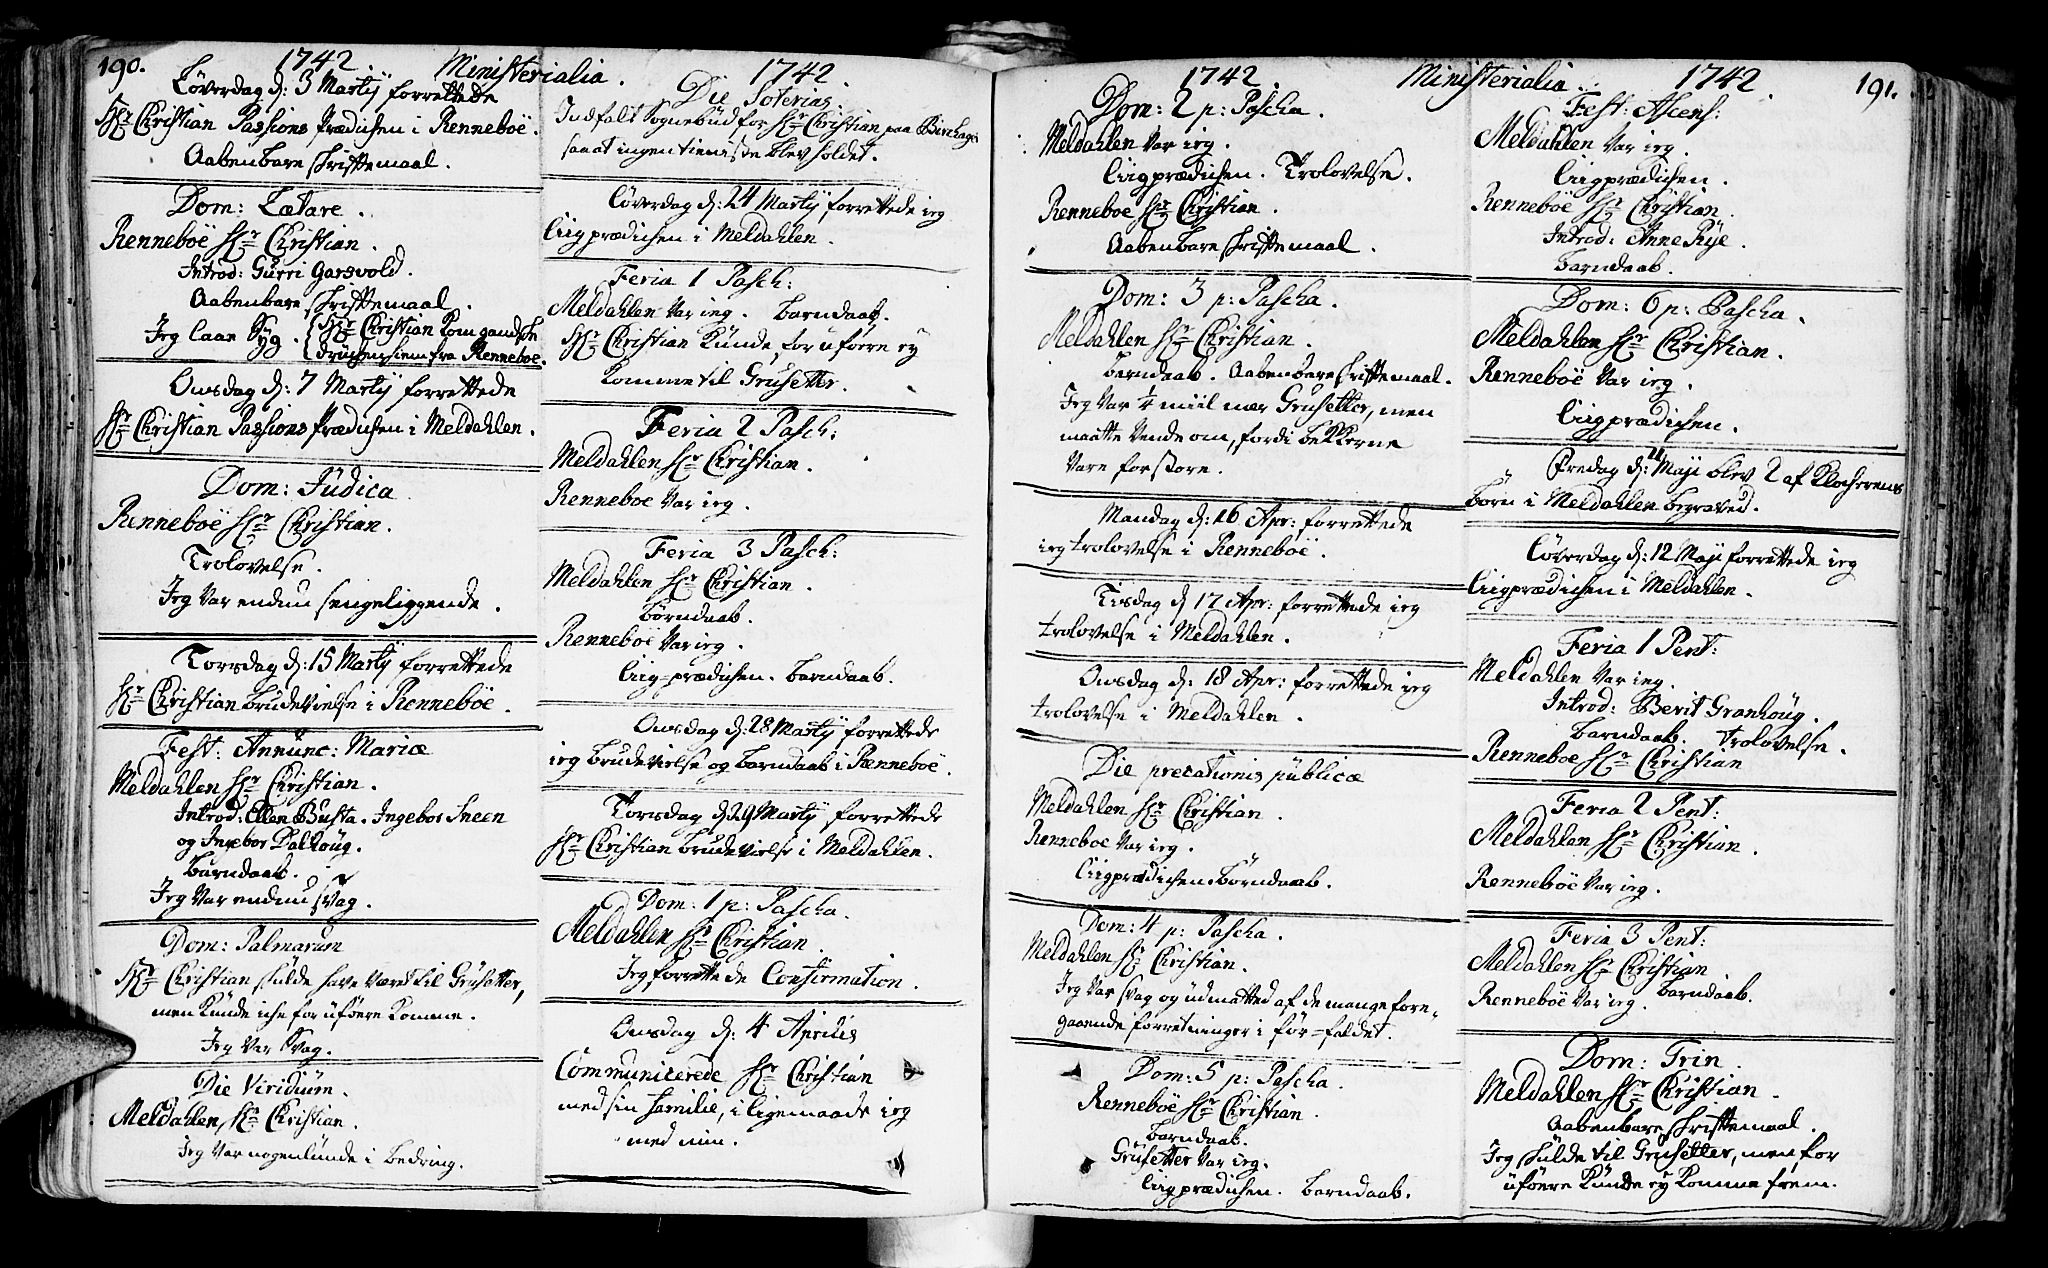 190. 1742. Ministerialia. 1742.
Løverdag d: 3 Martÿ forrettede
Hr Christian Passions Prædichen i Renneböe.
Aabenbare Skriftemaal.
Dom: Lætare.
Renneböe Hr Christian.
Introd: Gurri Garsvold.
Aabenbare Skriftemaal.
Jeg laae Syg. Hr Christian kom gandske
drüchen hiem fra Renneboe.
Onsdag d: 7 Martÿ forrettede
Hr Christian Passions Prædichen i Meldahlen.
Dom: Jüdica
Renneböe Hr Christian.
Trolovelse.
Jeg var endnu sengeliggende.
Torsdag d: 15 Martÿ forrettede
Hr Christian brudevielse i Renneböe.
Fest: Annunc: Mariæ
Meldahlen Hr Christian.
Introd: Ellen Busta. Ingebor Sneen
og Ingebor Dalhoüg.
Barndaab.
Jeg var endnu svag.
Dom: Palmarum
Hr Christian skulde have været til Grüsetter,
men kunde iche for uføere komme.
Jeg var Svag.
Die Viridium.
Meldahlen Hr Christian.
Jeg var nogenlunde i bedring.
Die Soterias.
Indfalt Sognebud for Hr Christian paa Birchager
saa at ingen tieniste blev holdet.
Løverdag d: 24 Martÿ forrettede ieg
Liigprædichen i Meldahlen.
Feria 1 Pasch:
Meldahlen var ieg. Barndaab.
Hr Christian kunde for uføere ey
komme til Grusetter.
Feria 2 Pasch:
Meldahlen Hr Christian.
Renneboe var ieg.
Feria 3 Pasch:
Meldahlen Hr Christian.
Børndaab.
Renneböe var ieg.
Liig-prædichen. Barndaab.
Onsdag d: 28 Martÿ forrettede
ieg brudevielse og barndaab i Renneböe.
Torsdag d 29 Martÿ forrettede
Hr Christian brudevielse i Meldahlen.
Dom: 1 p: Pascha.
Meldahlen Hr Christian.
Jeg forrettede Confirmation.
Onsdag d: 4 Aprilis
Communicerede Hr Christian
med sin familie, i ligemaade ieg
med min.
1742. Ministerialia. 1742. 191.
Dom: 2 p: Pascha.
Meldahlen var ieg.
Liigprædichen. Trolovelse.
Renneboe Hr Christian.
Aabenbare Skriftemaal.
Dom: 3 p: Pascha.
Meldahlen Hr Christian.
Barndaab. Aabenbare Skriftemaal.
Jeg var 1/4 miil nær Grusetter, men
maatte vende om, fordi bekkerne
vare for store.
Mandag d: 16 Apr: forrettede
ieg trolovelse i Renneböe.
Tisdag d 17 Apr: forrettede ieg
trolovelse i Meldahlen.
Onsdag d: 18 Apr: forrettede ieg
trolovelse i Meldahlen.
Die precationis püblicæ
Meldahlen Hr Christian.
Renneboe var ieg.
Liigprædichen. Børndaab.
Dom: 4 p: Pascha.
Meldahlen Hr Christian.
Jeg var svag og udmatted af de mange fore-
gaaende forretninger i før-faldet.
Dom: 5 p: Pascha.
Renneböe Hr Christian.
Barndaab.
Grüsetter var ieg.
Liigprædichen. Barndaab.
Fest: Ascens:
Meldahlen var ieg.
Liigprædichen.
Renneböe Hr Christian.
Introd: Anne Rye.
Barndaab.
Dom: 6 p: Pascha.
Meldahlen Hr Christian.
Renneböe var ieg.
Liigprædichen.
Fredag d: 11 Maji blev 2 af Klocherens
børn i Meldahlen begraved.
Løverdag d: 12 Maji forrettede ieg
Liigprædichen i Meldahlen.
Feria 1 Pent:
Meldahlen var ieg.
Introd: Berit Granhoüg.
Barndaab. Trolovelse.
Renneboe Hr Christian
Feria 2 Pent:
Meldahlen Hr Christian.
Renneböe var ieg.
Feria 3 Pent:
Meldahlen Hr Christian.
Renneböe var ieg. Barndaab.
Dom: Trin.
Meldahlen Hr Christian.
Aabenbare Skriftemaal.
Jeg skulde til Grusetter, men for
uføere kunde ey komme frem.